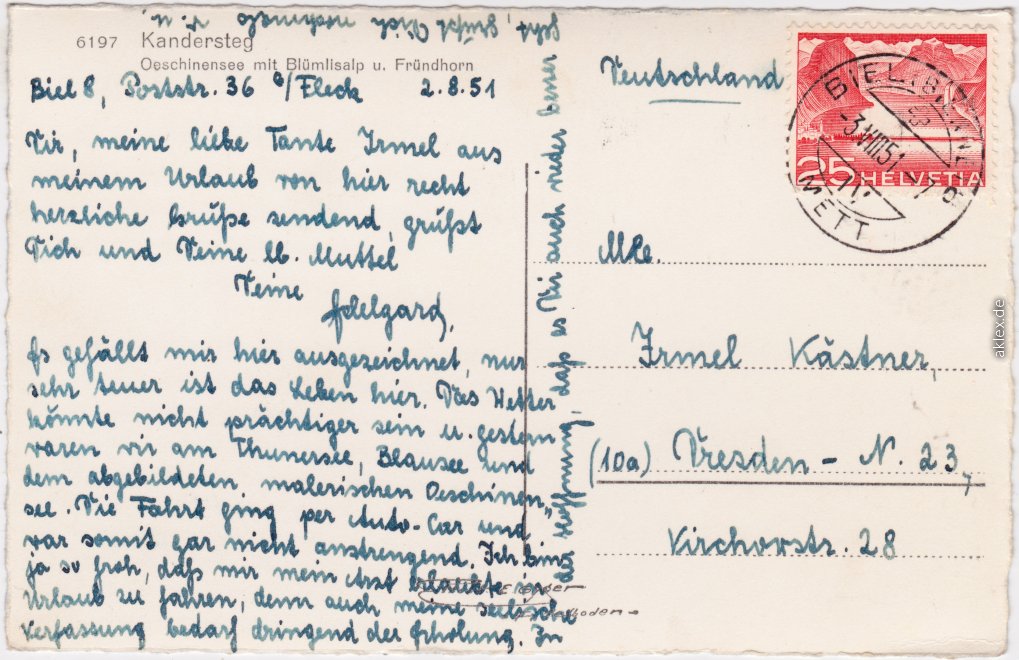 6197 Kandersteg
Oeschinensee mit Blümlisalp u. Fründhorn
Biel 8, Poststr. 36 c/Fleck 2.8.51
Dir, meine liebe Tante Irmel aus
meinem Urlaub von hier recht
herzliche Grüße sendend, grüßt
Dich und Deine lb. Muttel
Deine
Edelgard.
Es gefällt mir hier ausgezeichnet, nur
sehr teuer ist das Leben hier. Das Wetter
könnte nicht prächtiger sein u. gestern
waren wir am Thunersee, Blausee und
dem abgebildeten, malerischen Oeschinen-
see. Die Fahrt ging per Auto-Car und
war somit gar nicht anstrengend. Ich bin
ja so froh, daß mir mein Arzt erlaubte in
Urlaub zu fahren, denn auch meine seelische
Verfassung bedarf dringend der Erholung. In
der Hoffnung, daß es Dir auch wieder besser
geht, grüßt Dich nochmals
Deutschland
Mlle.
Irmel Kästner,
(10a) Dresden - N. 23,
Kirchowstr. 28
BIEL · BIENNE 8
-3.VIII.51-7
METT
25 HELVETIA
aklex.de